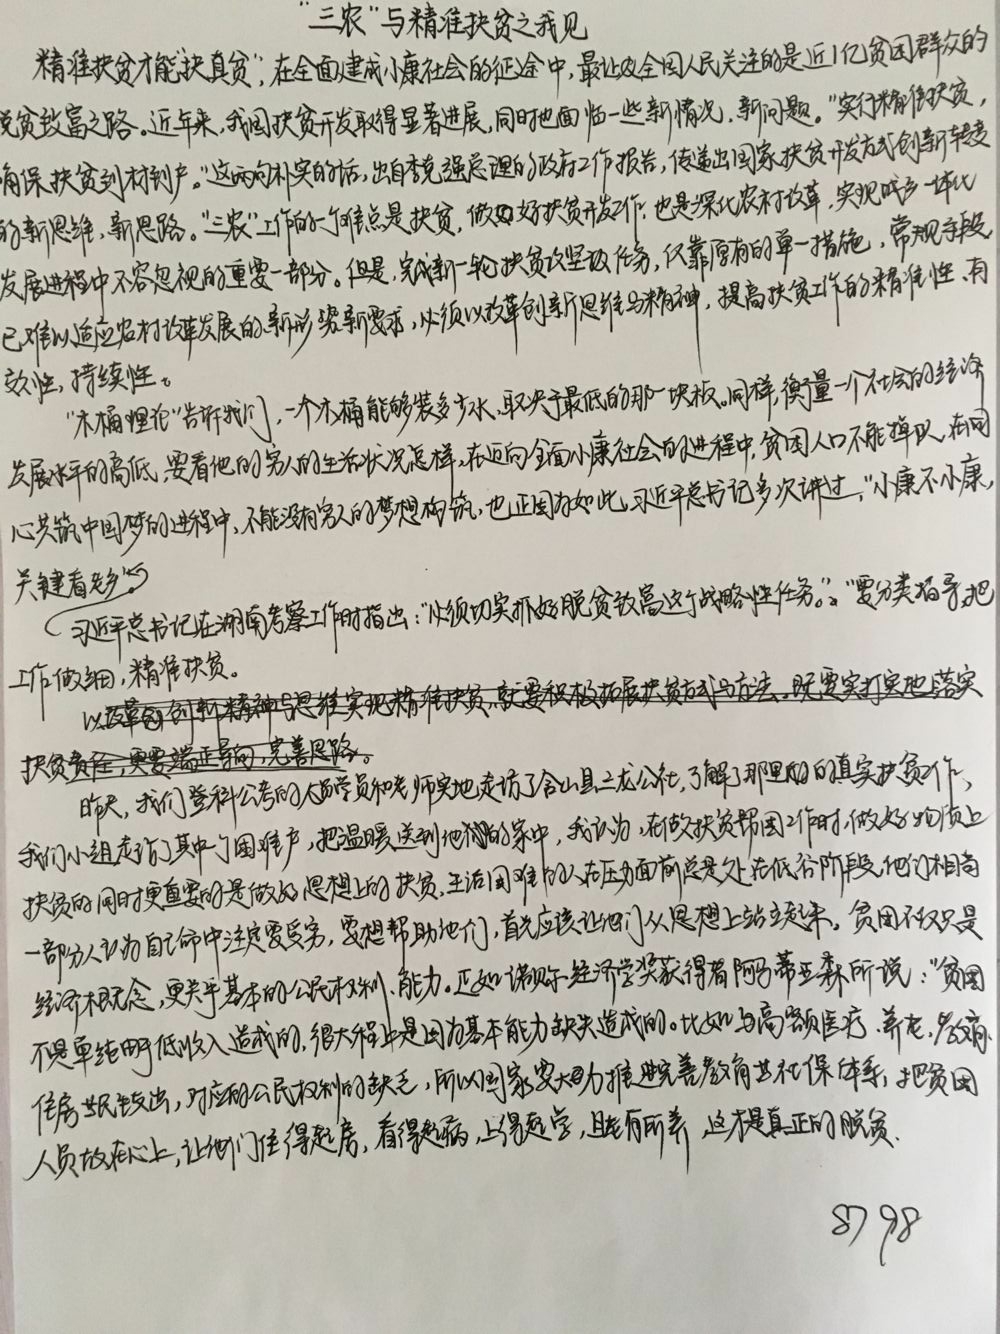 "三农"与精准扶贫之我见
精准扶贫才能"扶真贫",在全面建成小康社会的征途中,最让全国人民关注的是近1亿贫困群众的
脱贫致富之路。近年来,我国扶贫开发取得显著进展,同时也面临一些新情况,新问题。"实行精准扶贫,
确保扶贫到村到户。"这两句朴实的话,出自李克强总理的政府工作报告,传递出国家扶贫开发方式创新转变
的新思维,新思路。"三农"工作的一个难点是扶贫,做好扶贫开发工作,也是深化农村改革,实现城乡一体化
发展进程中不容忽视的重要一部分。但是,完成新一轮扶贫攻坚任务,仅靠原有的单一措施,常规手段
已难以适应农村改革发展的新形势新要求,必须以改革创新思维与精神,提高扶贫工作的精准性、有
效性,持续性。
"木桶理论"告诉我们,一个木桶能够装多少水,取决于最低的那一块板。同样,衡量一个社会的经济
发展水平的高低,要看他的穷人的生活状况怎样,在迈向全面小康社会的进程中,贫困人口不能掉队,在同
心共筑中国梦的进程中,不能没有穷人的梦想构筑,也正因为如此,习近平总书记多次讲过,"小康不小康,
关键看老乡"。
习近平总书记在湖南考察工作时指出:"必须切实抓好脱贫致富这个战略性任务。"、"要分类指导,把
工作做细,精准扶贫。
以改革创新精神与思维实现精准扶贫,就要积极拓展扶贫方式与方法。既要实打实地落实
扶贫责任,更要端正导向,完善思路。
昨天,我们登科公考的学员和老师实地走访了含山县二龙公社,了解了那里的真实扶贫工作,
我们小组走访了其中一个困难户,把温暖送到他的家中,我认为,在做扶贫帮困工作时,做好物质上
扶贫的同时更重要的是做好思想上的扶贫,生活困难的人在压力面前总是处在低谷阶段,他们相当
一部分人认为自己命中注定要受穷,要想帮助他们,首先应该让他们从思想上站立起来。贫困不仅只是
经济概念,更关乎基本的公民权利、能力。正如诺贝尔经济学奖获得者阿马蒂亚森所说:"贫困
不是单纯由于低收入造成的,很大程度上是因为基本能力缺失造成的。比如与高额医疗、养老、教育、
住房等民生支出,对应的公民权利的缺乏,所以国家要大力推进完善教育其社保体系,把贫困
人员放在心上,让他们住得起房,看得起病,上得起学,且老有所养,这才是真正的脱贫.
8798